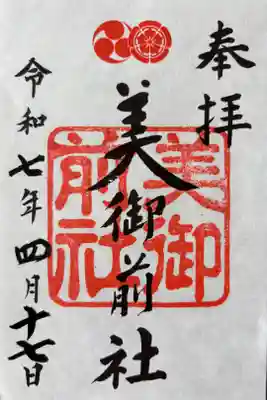 奉拝
美御前社
美御前社
令和七年四月十七日